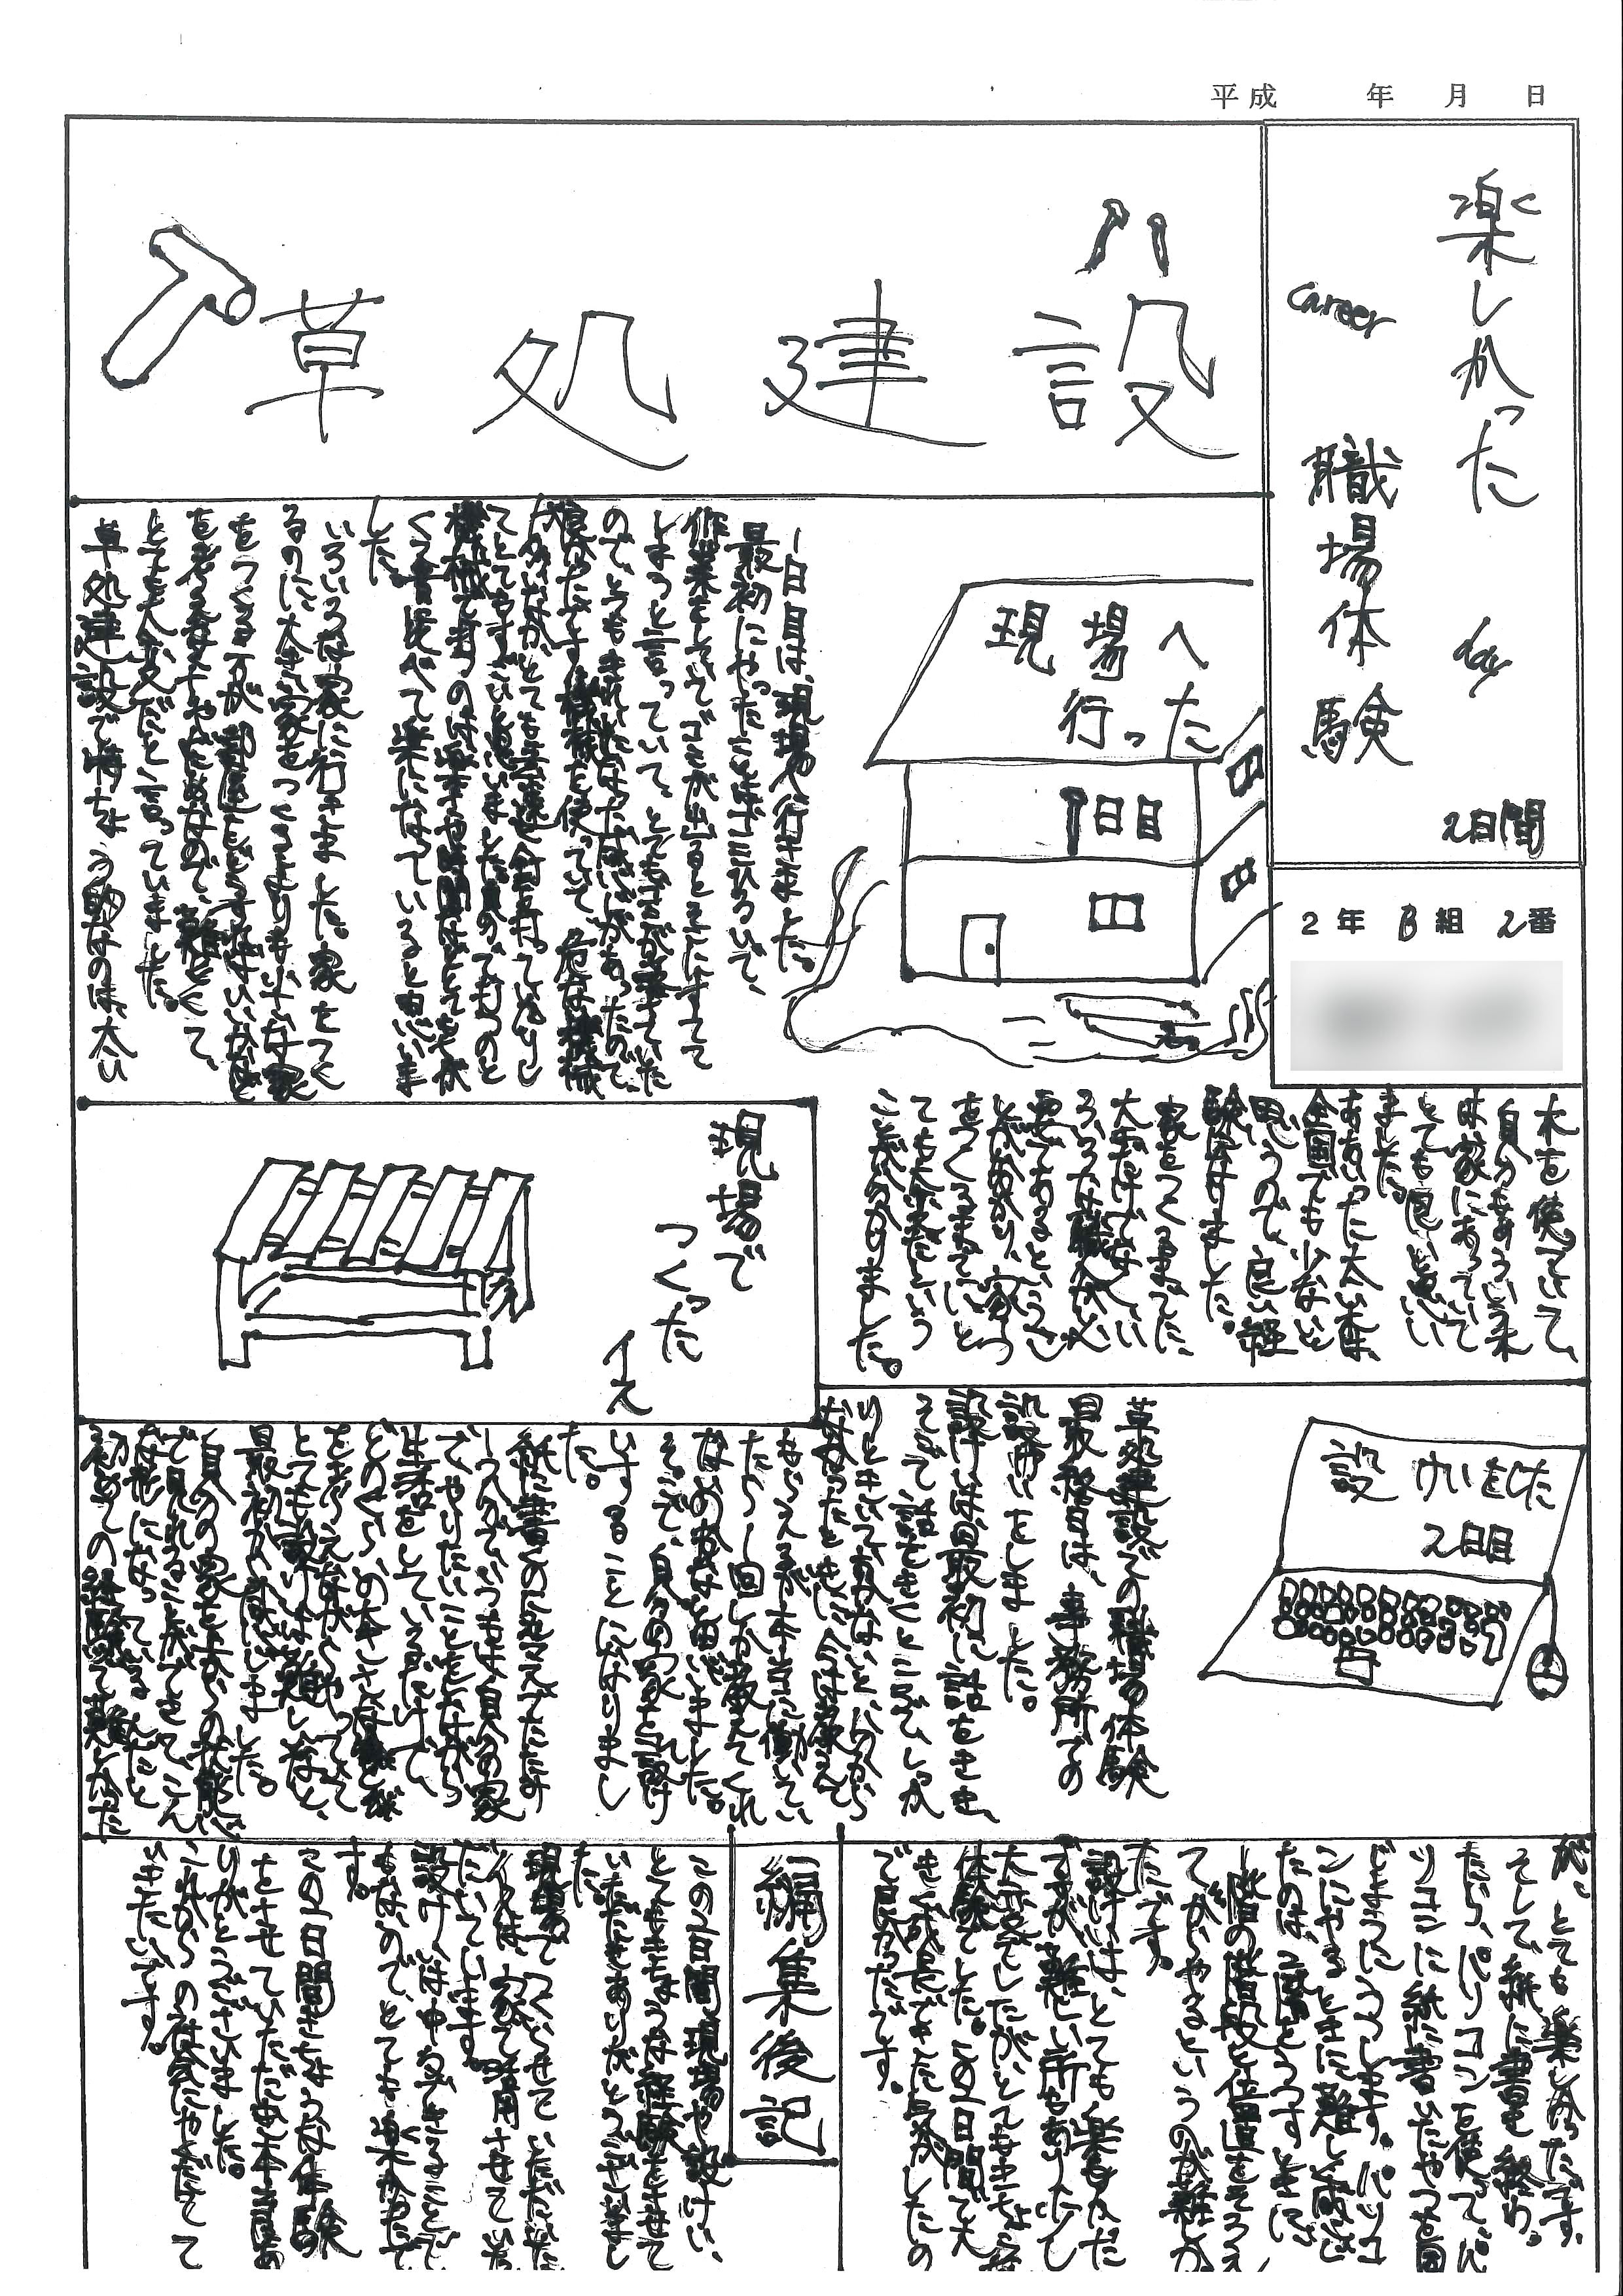 平成　年　月　日
楽しかった day 2日間
career 職場体験
2年 B組 2番
草処建設
現場へ
行った
1日目
一日目は、現場へ行きました。
最初にやったことはゴミひろいで、
作業をしていてゴミが出るとそこにすてて
しまうと言っていて、とてもゴミが落ちていた
ので、とてもきれいになった感じがあったので、
良かったです。機械を使っていて、危ない機械
てとてもすごいと思いました。
機械で打つのは楽さや時間などとてもはや
くて昔に比べて楽になっていると思いま
した。
いろいろな家に行きました。家をつく
るのに、大きい家をつくるよりも小さな家
をつくる方が、部屋をどうすればいいかなど
を考えなくちゃだめなので、難しくて、
とても大変だと言っていました。
草処建設で特ちょう的なのは、太い
木を使っていて、
自分もああいう木
は家にあっていて
とても良いと思い
ました。
ああいった太い木は、
全国でも少ないと
思うので、良い経
験になりました。
家をつくるまでに
大工だけでない
ろいろな職人が必
要であるというこ
とが分かり、家一つ
をつくるまでにと
ても大変だという
ことが分かりました。
現場で
つくった
イス
設けいをした
2日目
草処建設での職場の体験
最終日は、事務所での
設けいをしました。
設けいは最初に話をきき、
そして話をきくところでしっか
りときいておかないと、いらないから
なおったときに、今は教えて
もらえるが本当に働いてい
たら一回しか教えてくれ
ないのかなと思いました。
そこで、自分の家を設け
いすることになりまし
た。
紙に書くのに見えてたたみ
一つ分でいつもは自分の家
で、やりたいことをしながら
生活をしているだけで、
どのくらいの大きさなどが
を考えながらやってみて
とても設けいは難しいなと、
最初から思いました。
自分の家を上からの状態
で見れることができて、こん
な形になっているんだと
初めての経験で難しかった
が、とても楽しかったです。
そして、紙に書き終わっ
たら、パソコンを使って、パ
ソコンに紙に書いたやつを同
じようにうつします。パソコ
ンにやるときに難しく感じ
たのは、一階をうつすときに、
一階の階段と位置をそろえ
てからやるというのが難しか
ったです。
設けいは、とても楽しかった
ですが、難しい所もあり、少し
大変でしたが、とてもきちょうな
体験でした。この2日間で大
きく成長できた気がしたの
で良かったです。
編集後記
この2日間、現場や設けい、
とてもきちょうな経験をさせて
いただきありがとうございまし
た。
現場でつくらせていただいた
イスは、家で活用させていた
だいています。
設けいは中々できることで
もないので、とても楽しかったで
す。
この2日間きちょうな体験
をさせていただき本当にあ
りがとうございました。
これからの社会にやくだてて
いきたいです。